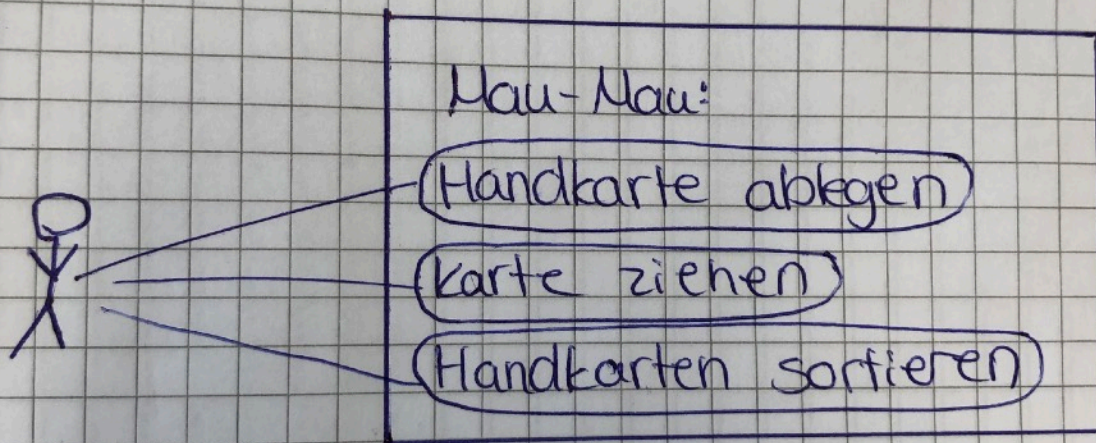 Mau-Mau:
Handkarte ablegen
Karte ziehen
Handkarten sortieren